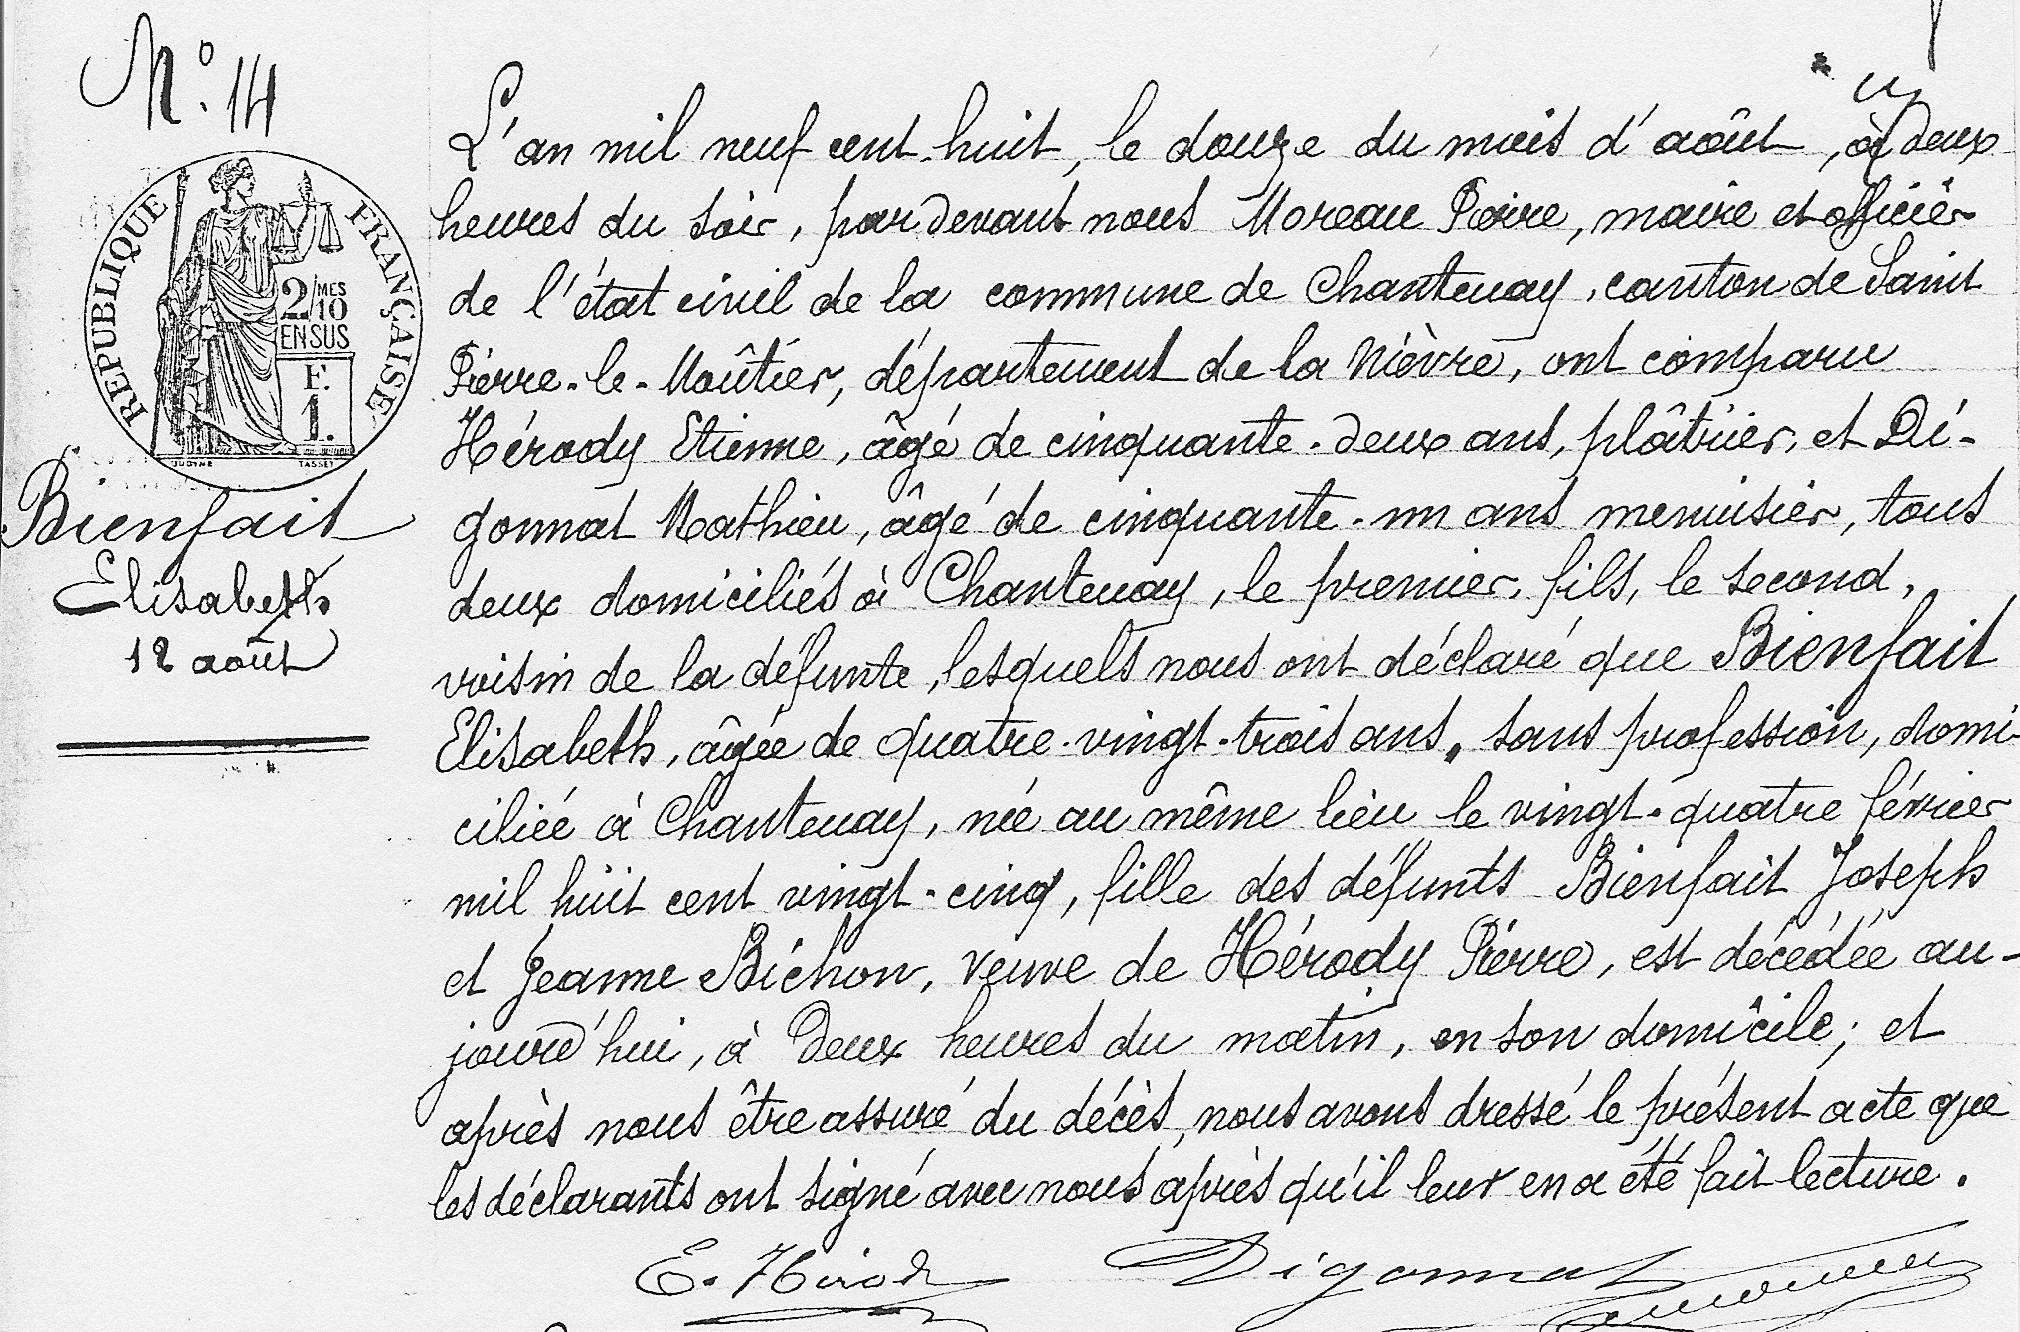 N° 14
REPUBLIQUE FRANÇAISE
2/10 MES
EN SUS
F.
1.
TASSET
Bienfait
Elisabeth
12 août
L'an mil neuf cent huit, le douze du mois d'août, à deux
heures du soir, par devant nous Moreau Pierre, maire et officier
de l'état civil de la commune de Chantenay, canton de Saint
Pierre-le-Moûtier, département de la Nièvre, ont comparu
Hérody Etienne, âgé de cinquante-deux ans, plâtrier, et Di-
gonnat Mathieu, âgé de cinquante-un ans menuisier, tous
deux domiciliés à Chantenay, le premier, fils, le second,
voisin de la défunte, lesquels nous ont déclaré que Bienfait
Elisabeth, âgée de quatre-vingt-trois ans, sans profession, domi-
ciliée à Chantenay, née au même lieu le vingt-quatre février
mil huit cent vingt-cinq, fille des défunts Bienfait Joseph
et Jeanne Bichon, veuve de Hérody Pierre, est décédée au-
jourd'hui, à deux heures du matin, en son domicile; et
après nous être assuré du décès, nous avons dressé le présent acte que
les déclarants ont signé avec nous après qu'il leur en a été fait lecture.
E. Hérody Digonnat